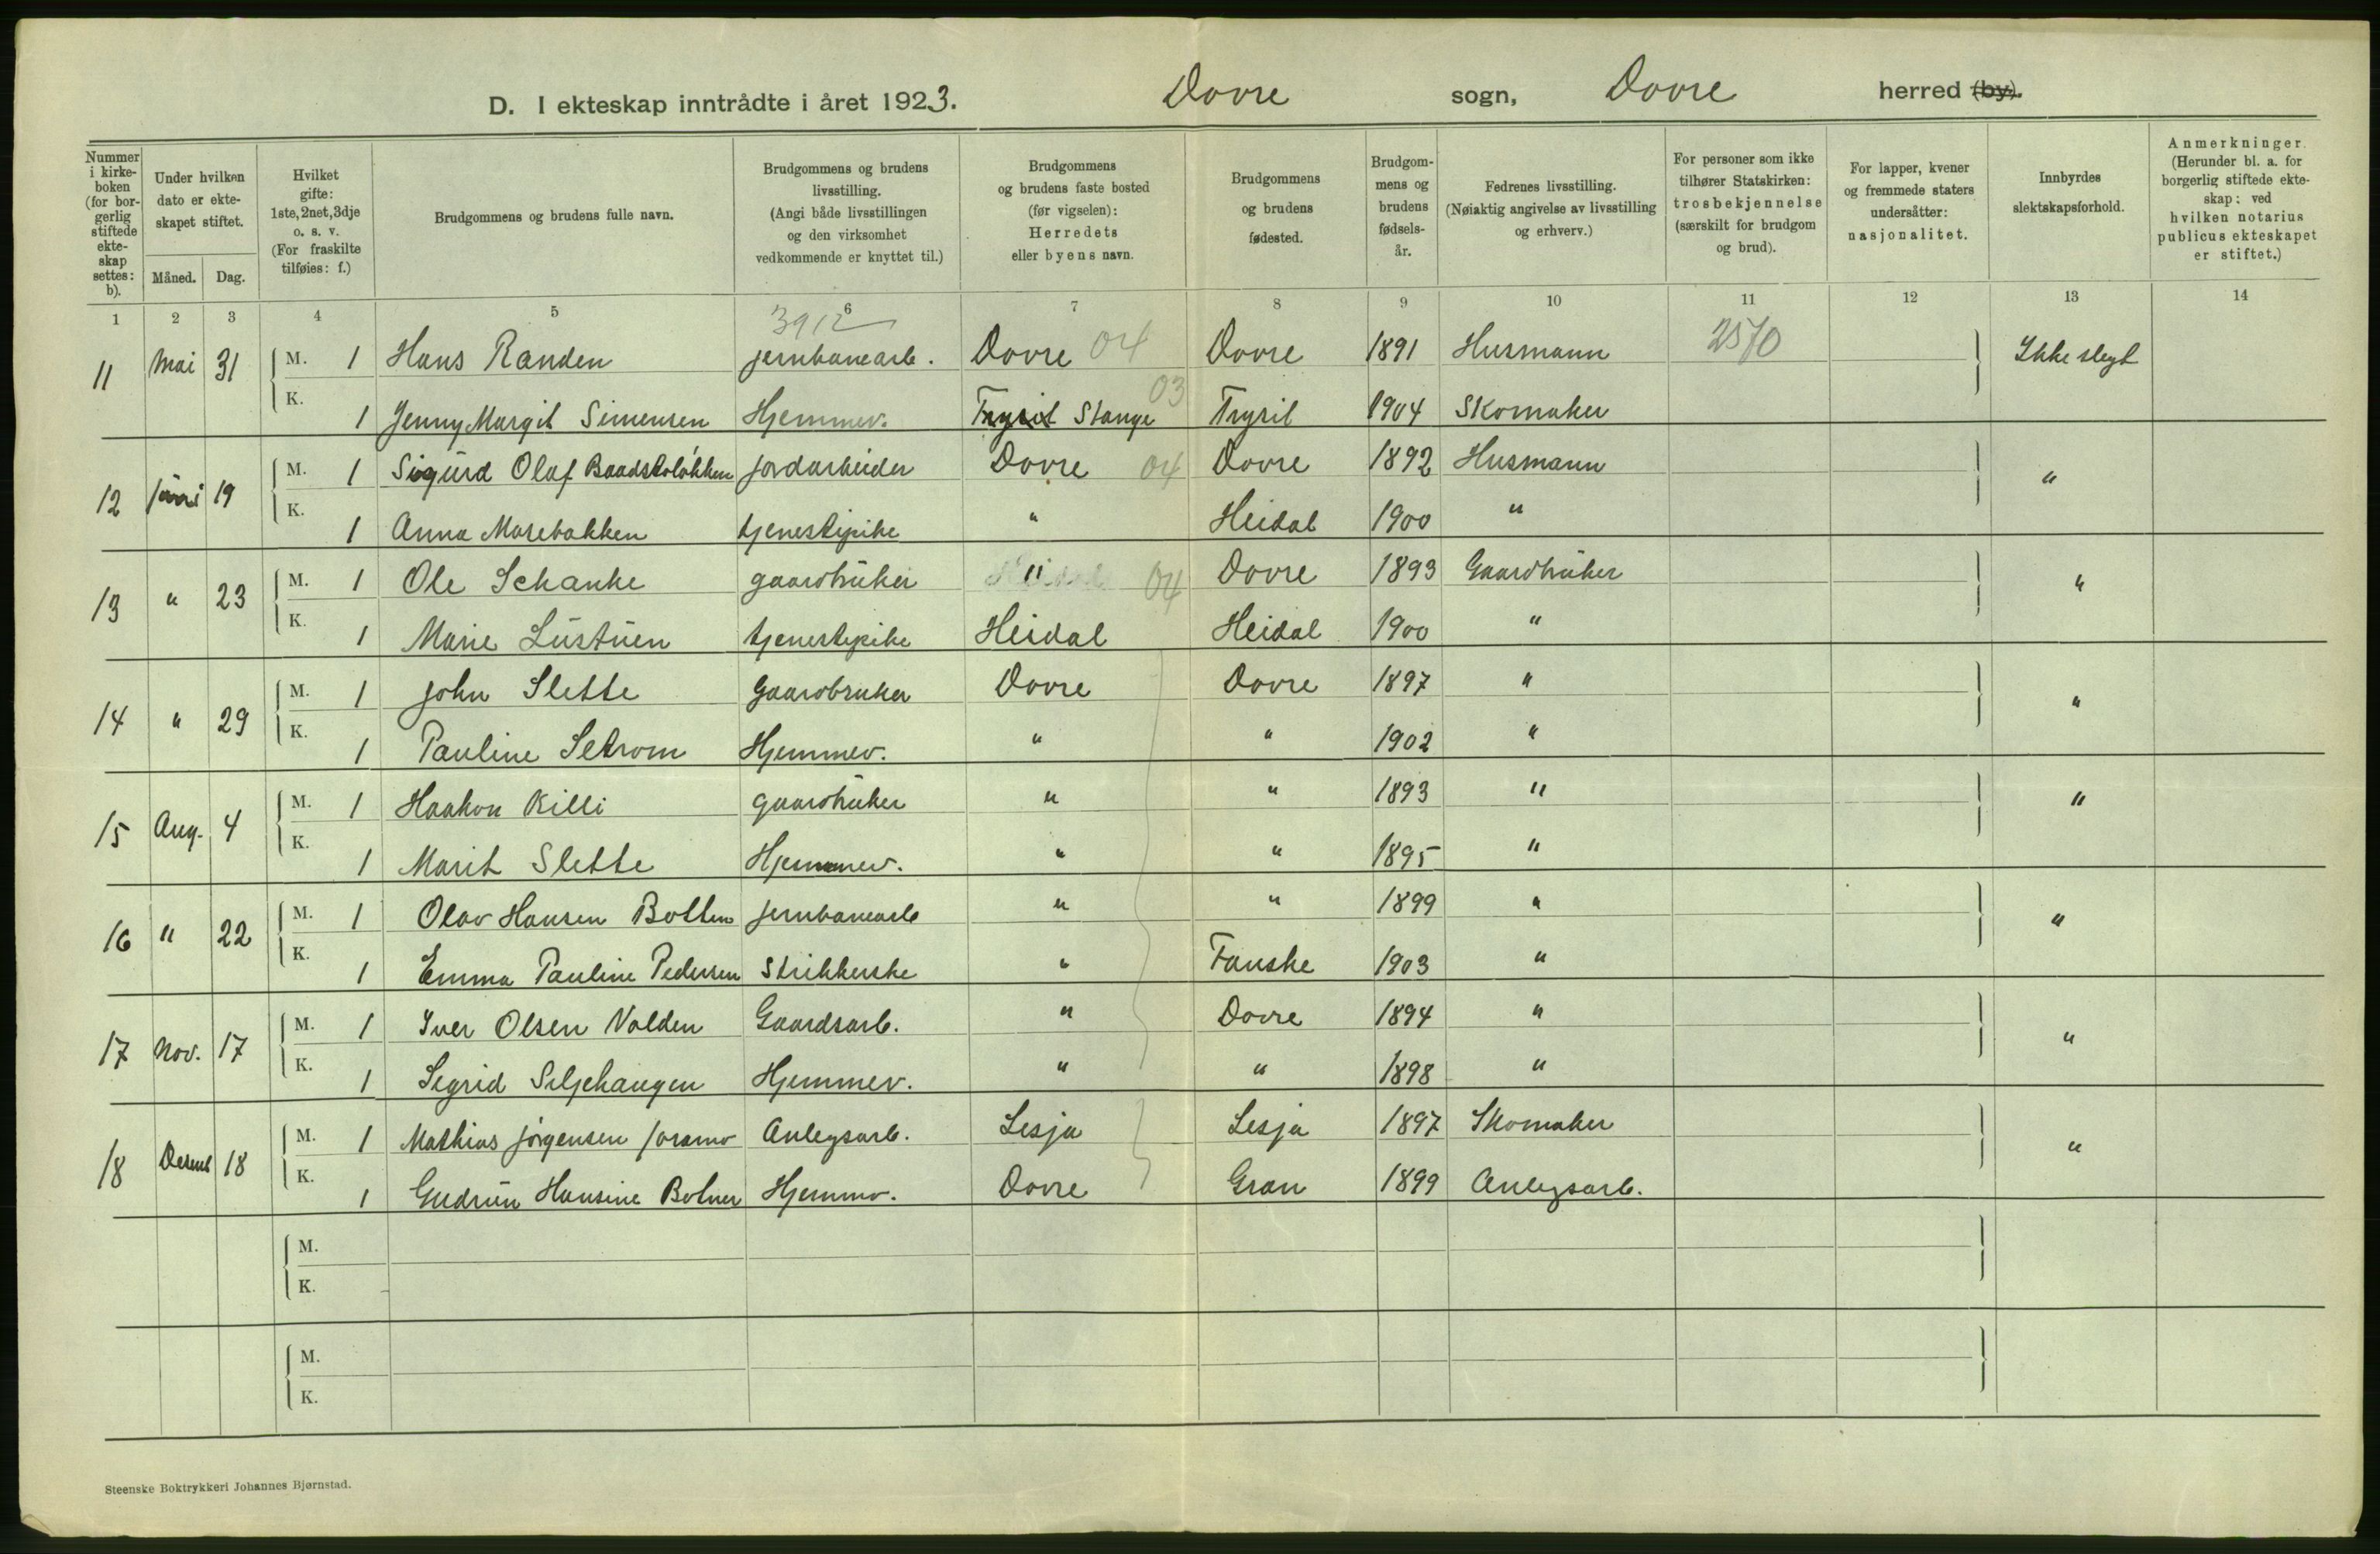 D. I ekteskap inntrådte i året 1923. Dovre sogn, Dovre herred (by).
Nummer i kirke-boken (for bor-gerlig stiftede ekte-skap settes: b).
Under hvilken dato er ekte-skapet stiftet.
Måned. Dag.
Hvilket gifte: 1ste, 2net, 3dje o. s. v. (For fraskilte tilføies: f.)
Brudgommens og brudens fulle navn.
Brudgommens og brudens livsstilling. (Angi både livsstillingen og den virksomhet vedkommende er knyttet til.)
Brudgommens og brudens faste bosted (før vigselen): Herredets eller byens navn.
Brudgommens og brudens fødested.
Brudgom-mens og brudens fødsels-år.
Fedrenes livsstilling. (Nøiaktig angivelse av livsstilling og erhverv.)
For personer som ikke tilhører Statskirken: trosbekjennelse (særskilt for brudgom og brud).
For lapper, kvener og fremmede staters undersåtter: nasjonalitet.
Innbyrdes slektskapsforhold.
Anmerkninger. (Herunder bl. a. for borgerlig stiftede ekte-skap: ved hvilken notarius publicus ekteskapet er stiftet.)
1 2 3 4 5 6 7 8 9 10 11 12 13 14
3912
11 Mai 31 M. 1 Hans Randen jernbanearb. Dovre 04 Dovre 1891 Husmann 2570 Ikke slegt
K. 1 Jenny Margit Simensen Hjemmev. Trysil Stange 03 Trysil 1904 Skomaker
12 juni 19 M. 1 Sigurd Olaf Baadstoløkken jordarbeider Dovre 04 Dovre 1892 Husmann "
K. 1 Anna Marebakken tjenestepike " Heidal 1900 "
13 " 23 M. 1 Ole Schanke gaardbruker " 04 Dovre 1893 Gaardbruker "
K. 1 Marie Lustuen tjenestepike Heidal Heidal 1900 "
14 " 29 M. 1 John Slette Gaardbruker Dovre Dovre 1897 " "
K. 1 Pauline Setrom Hjemmev. " " 1902 "
15 Aug. 4 M. 1 Haakon Killi gaardbruker " " 1893 " "
K. 1 Marit Slette Hjemmev. " " 1895 "
16 " 22 M. 1 Olav Hansen Botten jernbanearb " " 1899 " "
K. 1 Emma Pauline Pedersen Strikkerske " Fauske 1903 "
17 Nov. 17 M. 1 Iver Olsen Volden Gaardsarb. " Dovre 1894 " "
K. 1 Sigrid Seljehaugen Hjemmev. " " 1898 "
18 Desemb 18 M. 1 Mathias Jørgensen Joramo Anlegsarb. Lesja Lesja 1897 Skomaker "
K. 1 Gudrun Hansine Bolner Hjemmv. Dovre Gran 1899 Anlegsarb.
M.
K.
M.
K.
Steenske Boktrykkeri Johannes Bjørnstad.